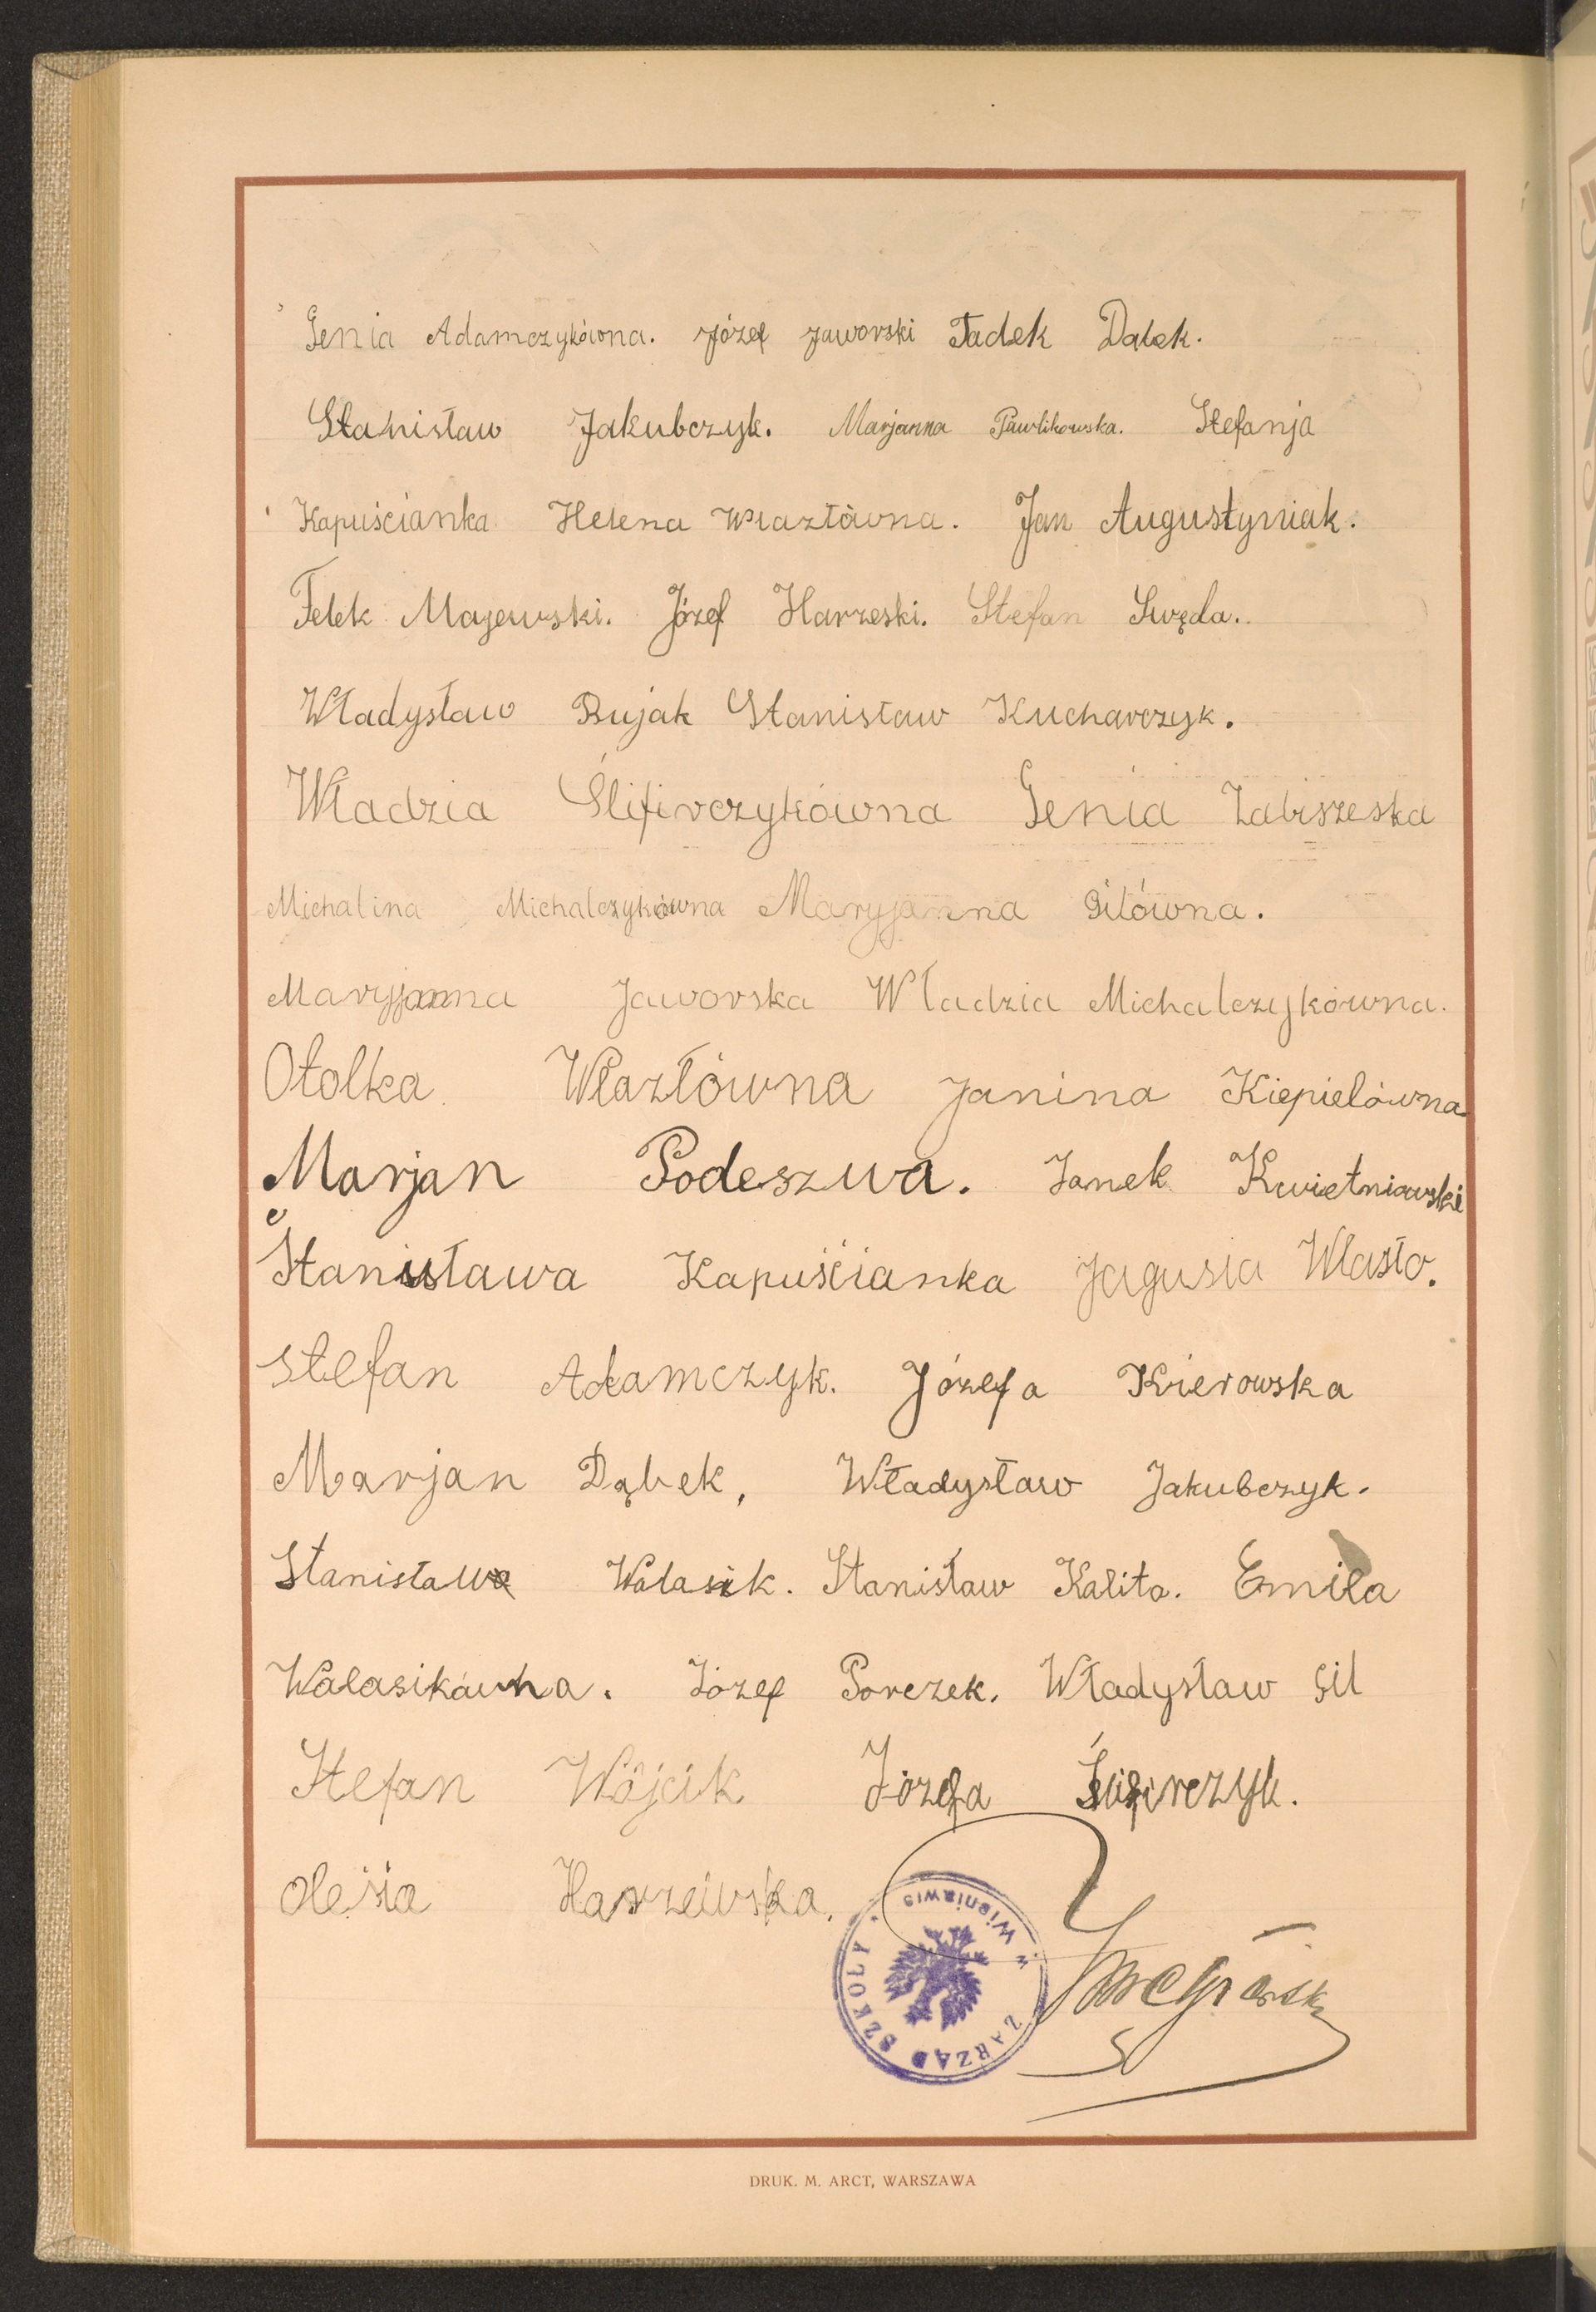 Genia Adamczykówna. Józef Jaworski Tadek Dąbek.
Stanisław Jakubczyk. Marjanna Pawlikowska. Stefanja
Kapuścianka Helena Wlazłówna. Jan Augustyniak.
Felek Majewski. Józef Harzeski. Stefan Swęda.
Władysław Bujak Stanisław Kucharczyk.
Władzia Ślifirczykówna Genia Zabiszeska
Michalina Michalczykówna Maryjanna Gilówna.
Maryjanna Jaworska Władzia Michalczykówna.
Otolka Wlazłówna Janina Kiepielówna
Marjan Podeszwa. Janek Kwietniowski
Stanisława Kapuścianka Jagusia Wlasło.
Stefan Adamczyk. Józefa Kierowska
Marjan Dąbek, Władysław Jakubczyk.
Stanisława Walasik. Stanisław Kalita. Emila
Walasikówna. Józef Porczek. Władysław Gil
Stefan Wójcik Józefa Ślifirczyk.
Olesia Harzewska.
ZARZĄD SZKOŁY w Wiśniewie
DRUK. M. ARCT, WARSZAWA